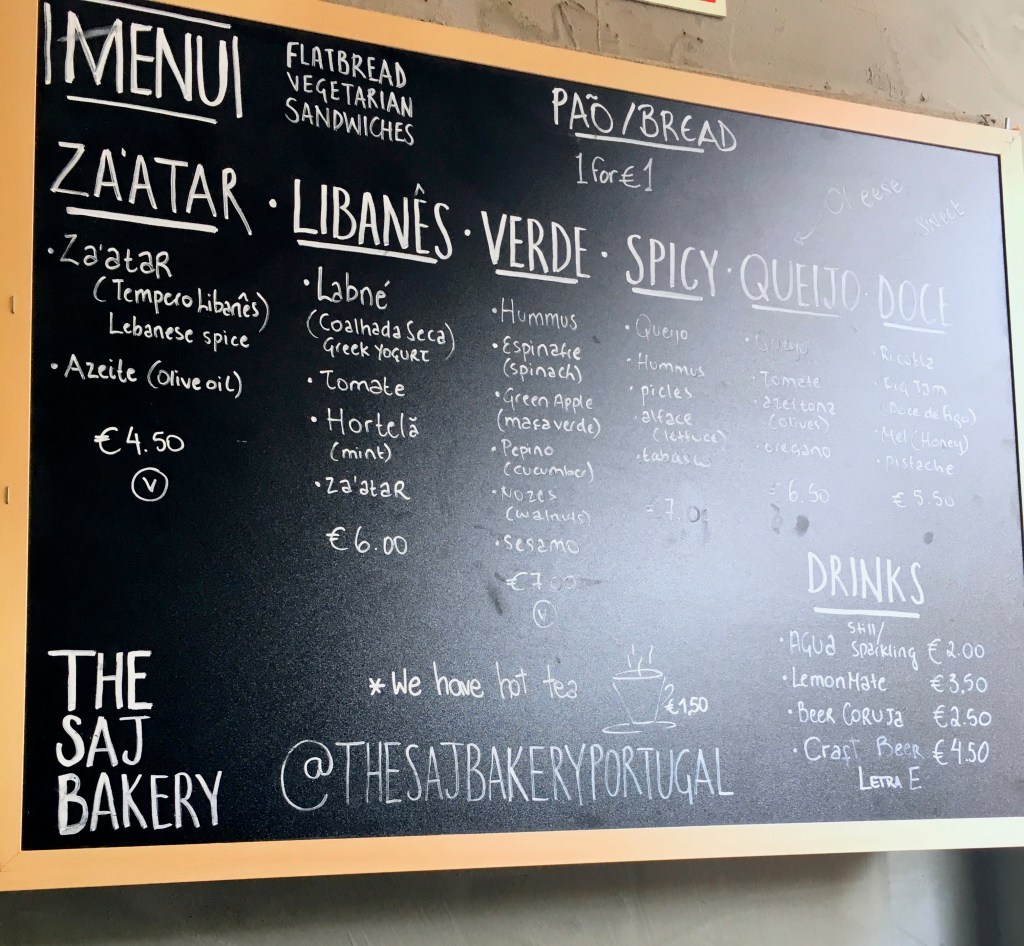 MENU
FLATBREAD
VEGETARIAN
SANDWICHES
PAÕ/BREAD
1 for €1
ZA'ATAR
• Za'atar
(Tempero Libanês)
Lebanese spice
• Azeite (olive oil)
€4.50
V
• LIBANÊS
• Labné
(Coalhada Seca)
Greek Yogurt
• Tomate
• Hortelã
(mint)
• Za'atar
€6.00
• VERDE
• Hummus
• Espinafre
(spinach)
• Green Apple
(masaverde)
• Pepino
(cucumber)
• Nozes
(walnuts)
• sesamo
€7.00
V
• SPICY
• Queijo
• Hummus
• picles
• alface
(lettuce)
• tabasco
€7.0
Cheese
• QUEIJO
• Queijo
• Tomate
• azeitona
(olives)
• oregano
€6.50
Sweet
• DOCE
• Ricotta
• Fig Jam
(Doce de Figo)
• Mel (Honey)
• pistache
€5.50
DRINKS
Still/
• AGUA Sparkling €2.00
• Lemon Mate €3,50
• Beer CORUJA €2.50
• Craft Beer €4.50
LETRA E
* We have hot tea
€1,50
THE
SAJ
BAKERY
@THESAJBAKERYPORTUGAL